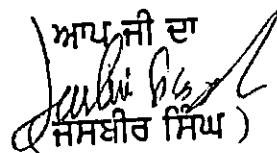 ਆਪ ਜੀ ਦਾ
ਜਸਬੀਰ ਸਿੰਘ )